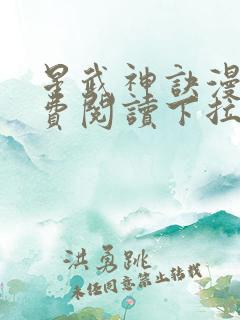 星武神訣漫
費閱讀下拉
洪勇跳
未经同意禁止转载